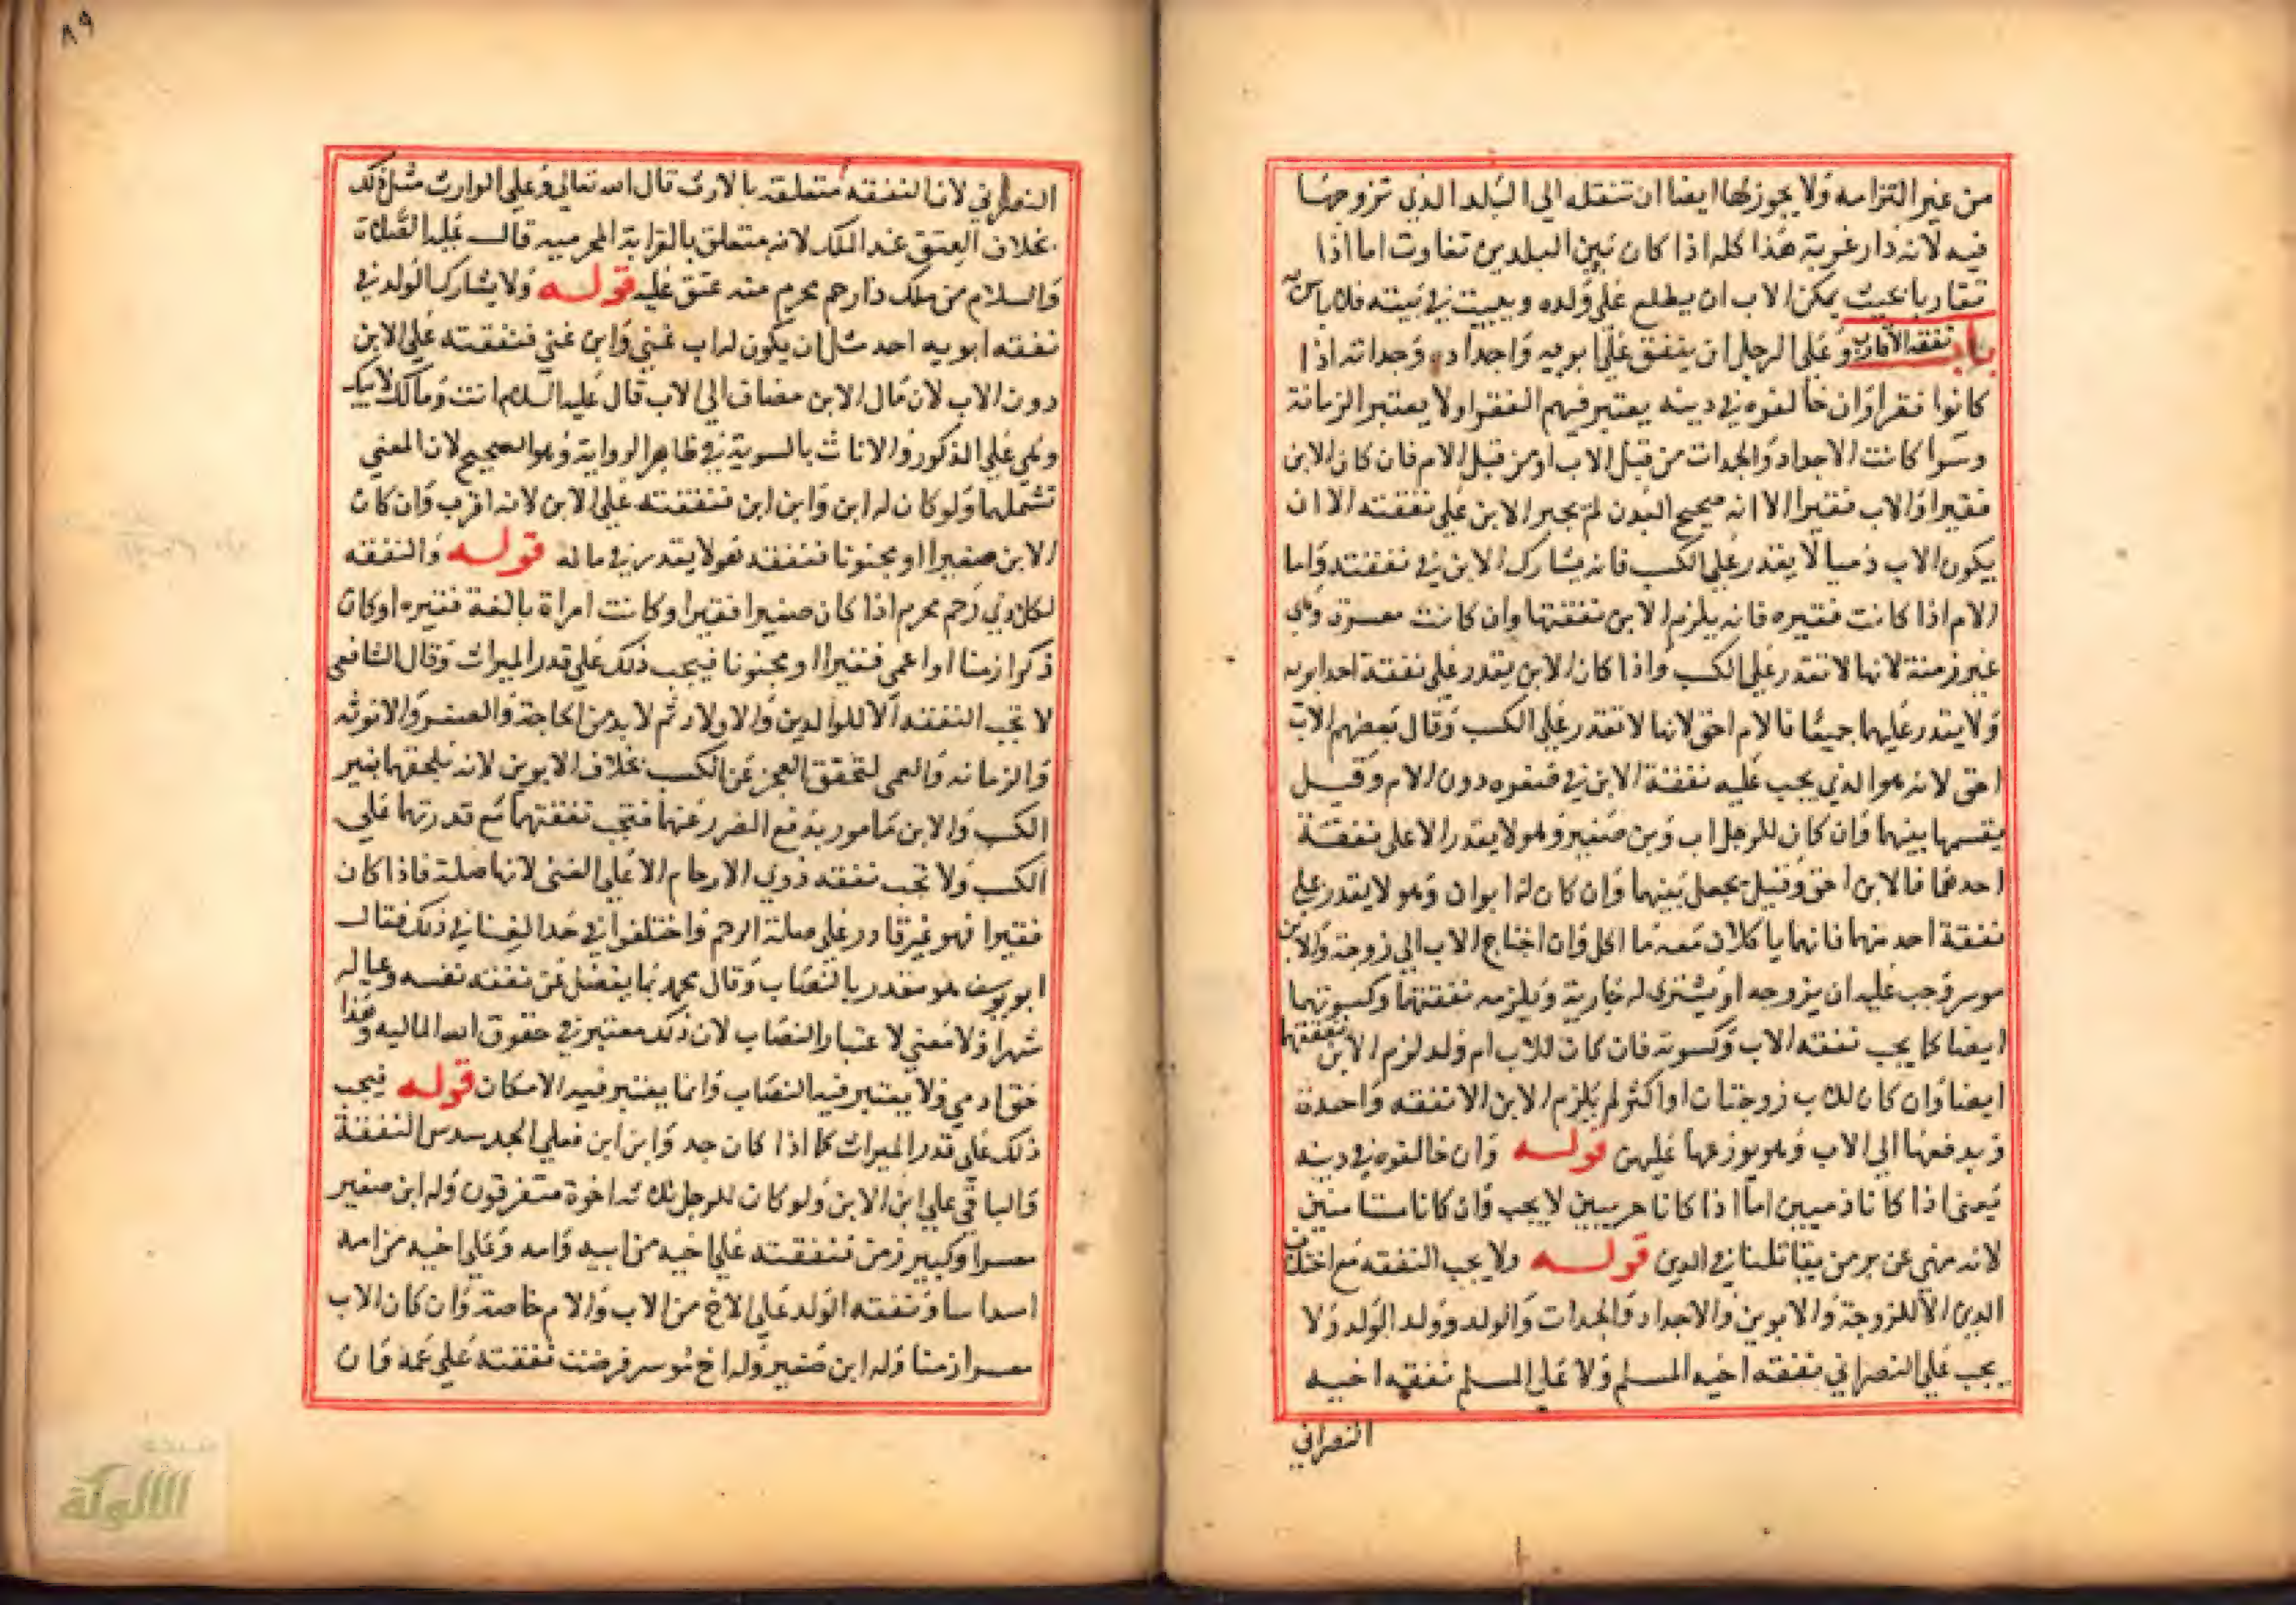 من غير التزامه ولا يجوز لها ايضا ان تنتقله الى البلد الذي تزوجها
فيه لانه دار غربة هذا كله اذا كان بين البلدين تفاوت اما اذا
تقاربا بحيث يمكن الاب ان يطلع على ولده ويبيت في بيته فلا باس به
باب نفقة الاقارب وعلى الرجل ان ينفق على ابويه واجداده وجداته اذا
كانوا فقرا وان خالفوه في دينه يعتبر فيهم الفقر ولا يعتبر الزمانة
وسوا كانت الاجداد والجدات من قبل الاب او من قبل الام فان كان الابن
فقيرا والاب فقيرا الا انه صحيح البدن لم يجبر الابن على نفقته الا ان
يكون الاب زمنا لا يقدر على الكسب فانه يشارك الابن في نفقته واما
الام اذا كانت فقيره فانه يلزم الابن نفقتها وان كانت معسرة وهي
غير زمنة لانها لا تقدر على الكسب واذا كان الابن يقدر على نفقة احد ابويه
ولا يقدر عليهما جميعا فالام احق لانها لا تقدر على الكسب وقال بعضهم الاب
احق لانه هو الذي يجب عليه نفقة الابن في صغره دون الام وقيل
يقسمها بينهما وان كان للرجل اب وبن صغير وهو لا يقدر الا على نفقة
احدهما فالابن احق وقيل يجعل بينهما وان كان له ابوان وهو لا يقدر على
نفقة احد منهما فانهما ياكلان معه ما اكل وان احتاج الاب الى زوجة والابن
موسر وجب عليه ان يزوجه او يشترى له جارية ويلزمه نفقتهما وكسوتهما
ايضا كما يجب نفقه الاب وكسوته فان كان للاب ام ولد لزم الابن نفقتها
ايضا وان كان للاب زوجتان او اكثر لم يلزم الابن الا نفقه واحدة
ويدفعها الى الاب وهو يوزعها عليهن قوله وان خالفوه في دينه
يعنى اذا كانا ذميين اما اذا كانا حربيين لا يجب وان كانا مستامنين
لانه منهي عن بر من يقاتلنا في الدين قوله ولا يجب النفقه مع اختلاف
الدين الا للزوجة والابوين والاجداد والجدات والولد وولد الولد ولا
يجب على النصراني نفقه اخيه المسلم ولا على المسلم نفقه اخيه
النصراني
٨٩
النصراني لان النفقه متعلقه بالارث قال الله تعالى وعلى الوارث مثل ذلك
بخلاف العتق عند الملك لانه متعلق بالقرابة المحرميه قال عليه الصلاة
والسلام من ملك ذا رحم محرم منه عتق عليه قوله ولا يشارك الولد في
نفقه ابويه احد مثل ان يكون له اب غني وابن غني فنفقته على الابن
دون الاب لان مال الابن مضاف الى الاب قال عليه السلام انت ومالك لابيك
وهي على الذكور والاناث بالسوية في ظاهر الرواية وهو الصحيح لان المعني
تشملهما ولو كان له ابن وابن ابن فنفقته على الابن لانه اقرب وان كان
الابن صغيرا او مجنونا فنفقته هو لا يقدر في ماله قوله والنفقه
لكل ذي رحم محرم اذا كان صغيرا فقيرا وكانت امراة بالغة فقيره او كان
ذكرا زمنا او اعمى فقيرا او مجنونا فيجب ذلك على قدر الميراث وقال الشافعى
لا تجب النفقه الا للوالدين والاولاد ثم لا بد من الحاجة والصغر والانوثه
والزمانه والعمى لتحقق العجز عن الكسب بخلاف الابوين لانه يلحقهما بغير
الكسب والابن مامور بدفع الضرر عنهما فتجب نفقتهما مع قدرتهما على
الكسب ولا تجب نفقه ذوي الارحام الا على الغني لانها صلة فاذا كان
فقيرا فهو غير قادر على صلة الرحم واختلفوا في حد الغنا في ذلك فقال
ابو يوسف هو مقدر بالنصاب وقال محمد بما يفضل عن نفقه نفسه وعياله
شهرا ولا معني لاعتبار النصاب لان ذلك معتبر في حقوق الله الماليه وهذا
حق ادمي ولا يعتبر فيه النصاب وانما يعتبر فيه الامكان قوله فيجب
ذلك على قدر الميراث كما اذا كان جد وابن ابن فعلى الجد سدس النفقة
والباقي على ابن الابن ولو كان للرجل ثلاثه اخوة متفرقون وله ابن صغير
معسرا وكبير زمن فنفقته على اخيه من ابيه وامه وعلى اخيه من امه
اسداسا ونفقه الولد على الاخ من الاب والام خاصة وان كان الاب
معسرا زمنا وله ابن صغير وله اخ موسر فرضت نفقته على عمه وان
الألوكة